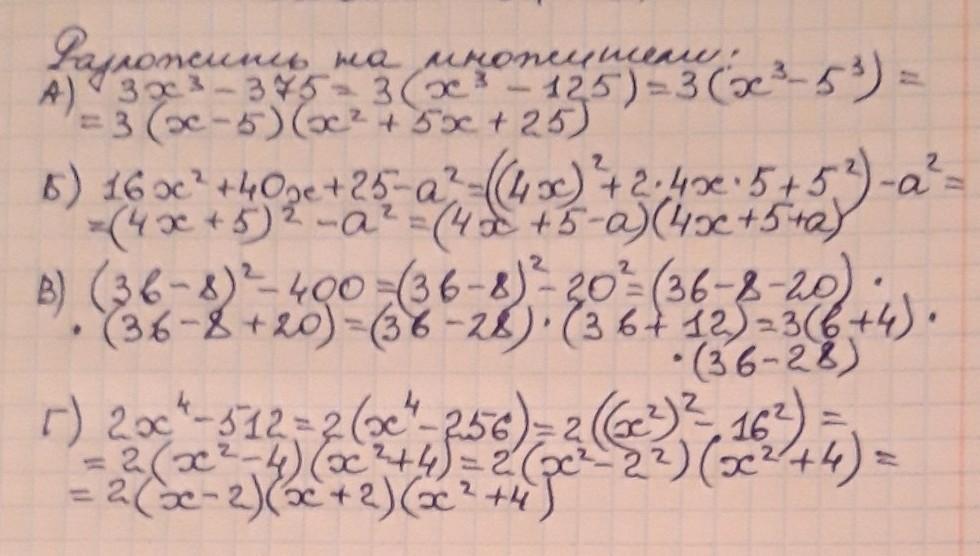 Разложить на множители:
А) 3x³ - 375 = 3(x³ - 125) = 3(x³ - 5³) =
= 3(x - 5)(x² + 5x + 25)
Б) 16x² + 40x + 25 - a² = ((4x)² + 2·4x·5 + 5²) - a² =
= (4x + 5)² - a² = (4x + 5 - a)(4x + 5 + a)
В) (3в - 8)² - 400 = (3в - 8)² - 20² = (3в - 8 - 20) ·
· (3в - 8 + 20) = (3в - 28) · (3в + 12) = 3(в + 4) ·
· (3в - 28)
Г) 2x⁴ - 512 = 2(x⁴ - 256) = 2((x²)² - 16²) =
= 2(x² - 4)(x² + 4) = 2(x² - 2²)(x² + 4) =
= 2(x - 2)(x + 2)(x² + 4)